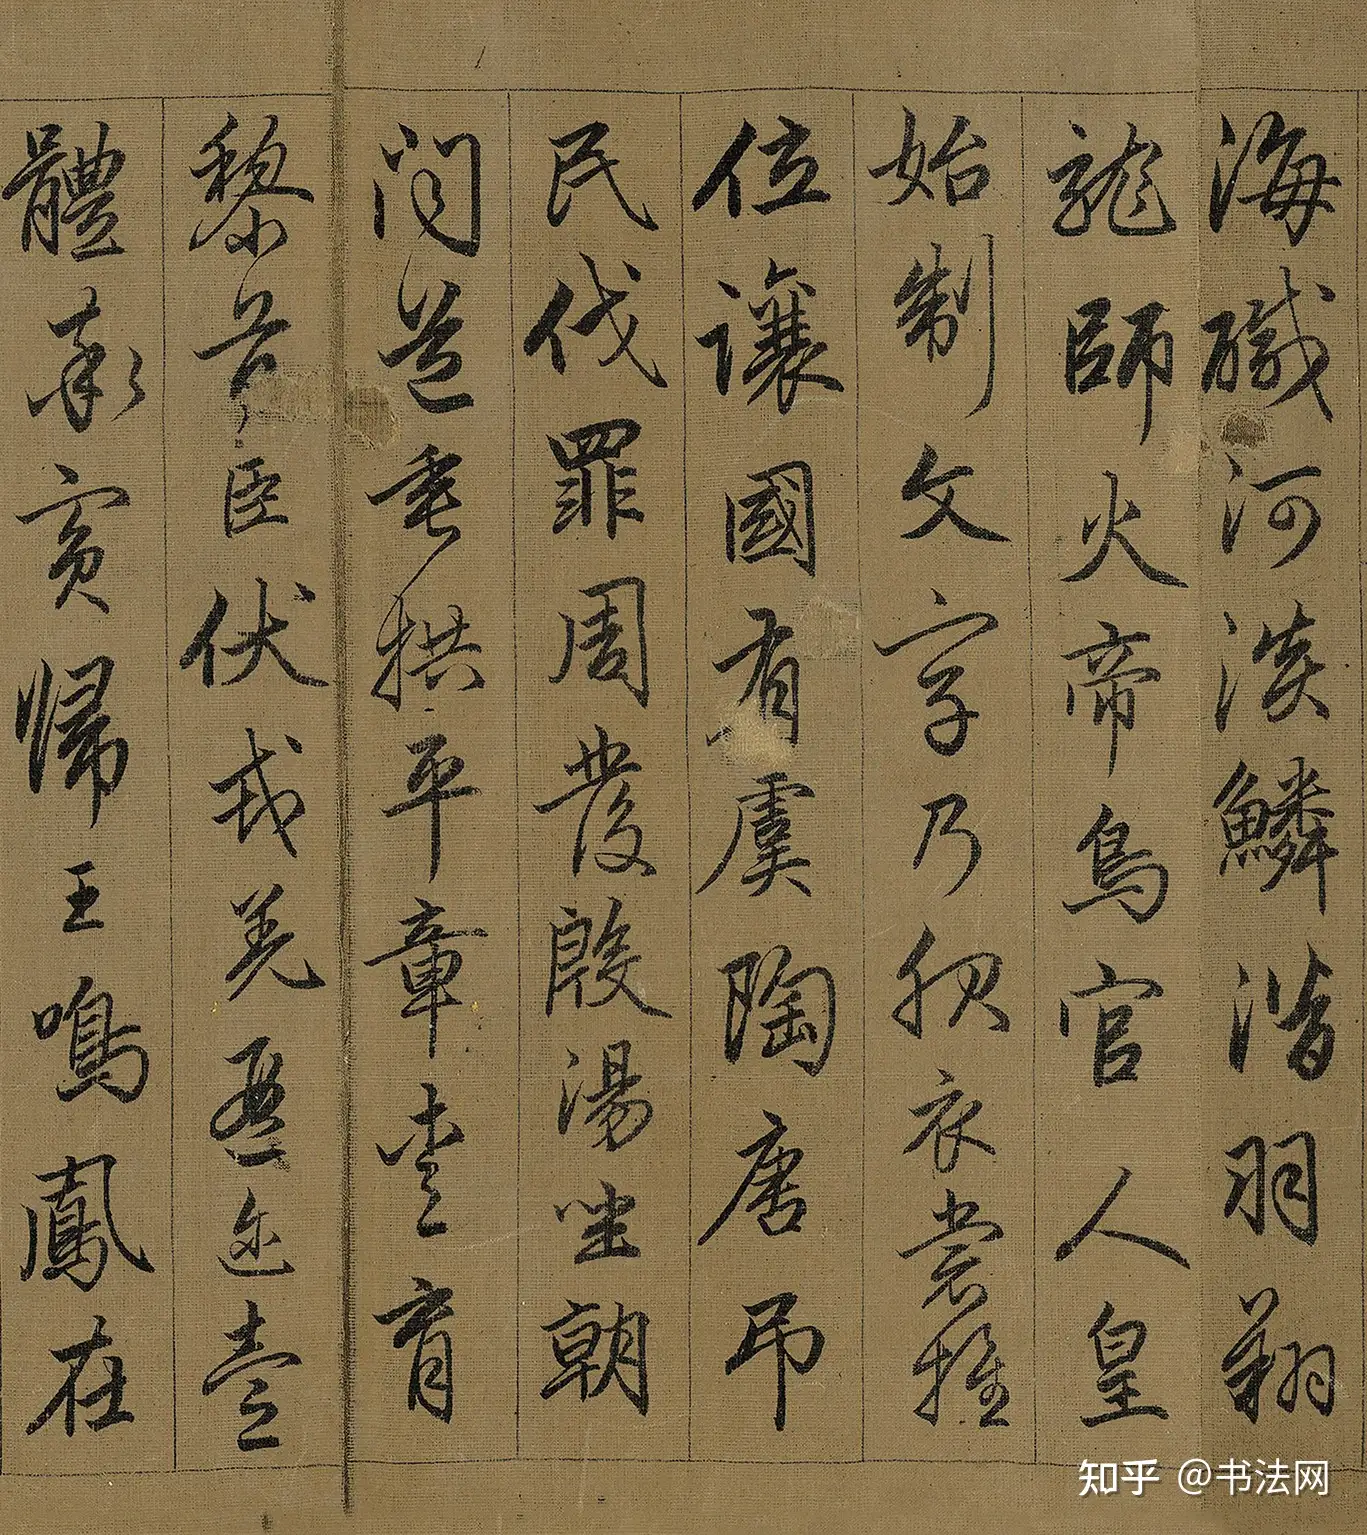 海醎河淡鱗潜羽翔
龍師火帝鳥官人皇
始制文字乃服衣裳推
位讓國有虞陶唐吊
民伐罪周發殷湯坐朝
問道垂拱平章愛育
黎首臣伏戎羌遐迩壹
體率賓歸王鳴鳳在
知乎 @书法网